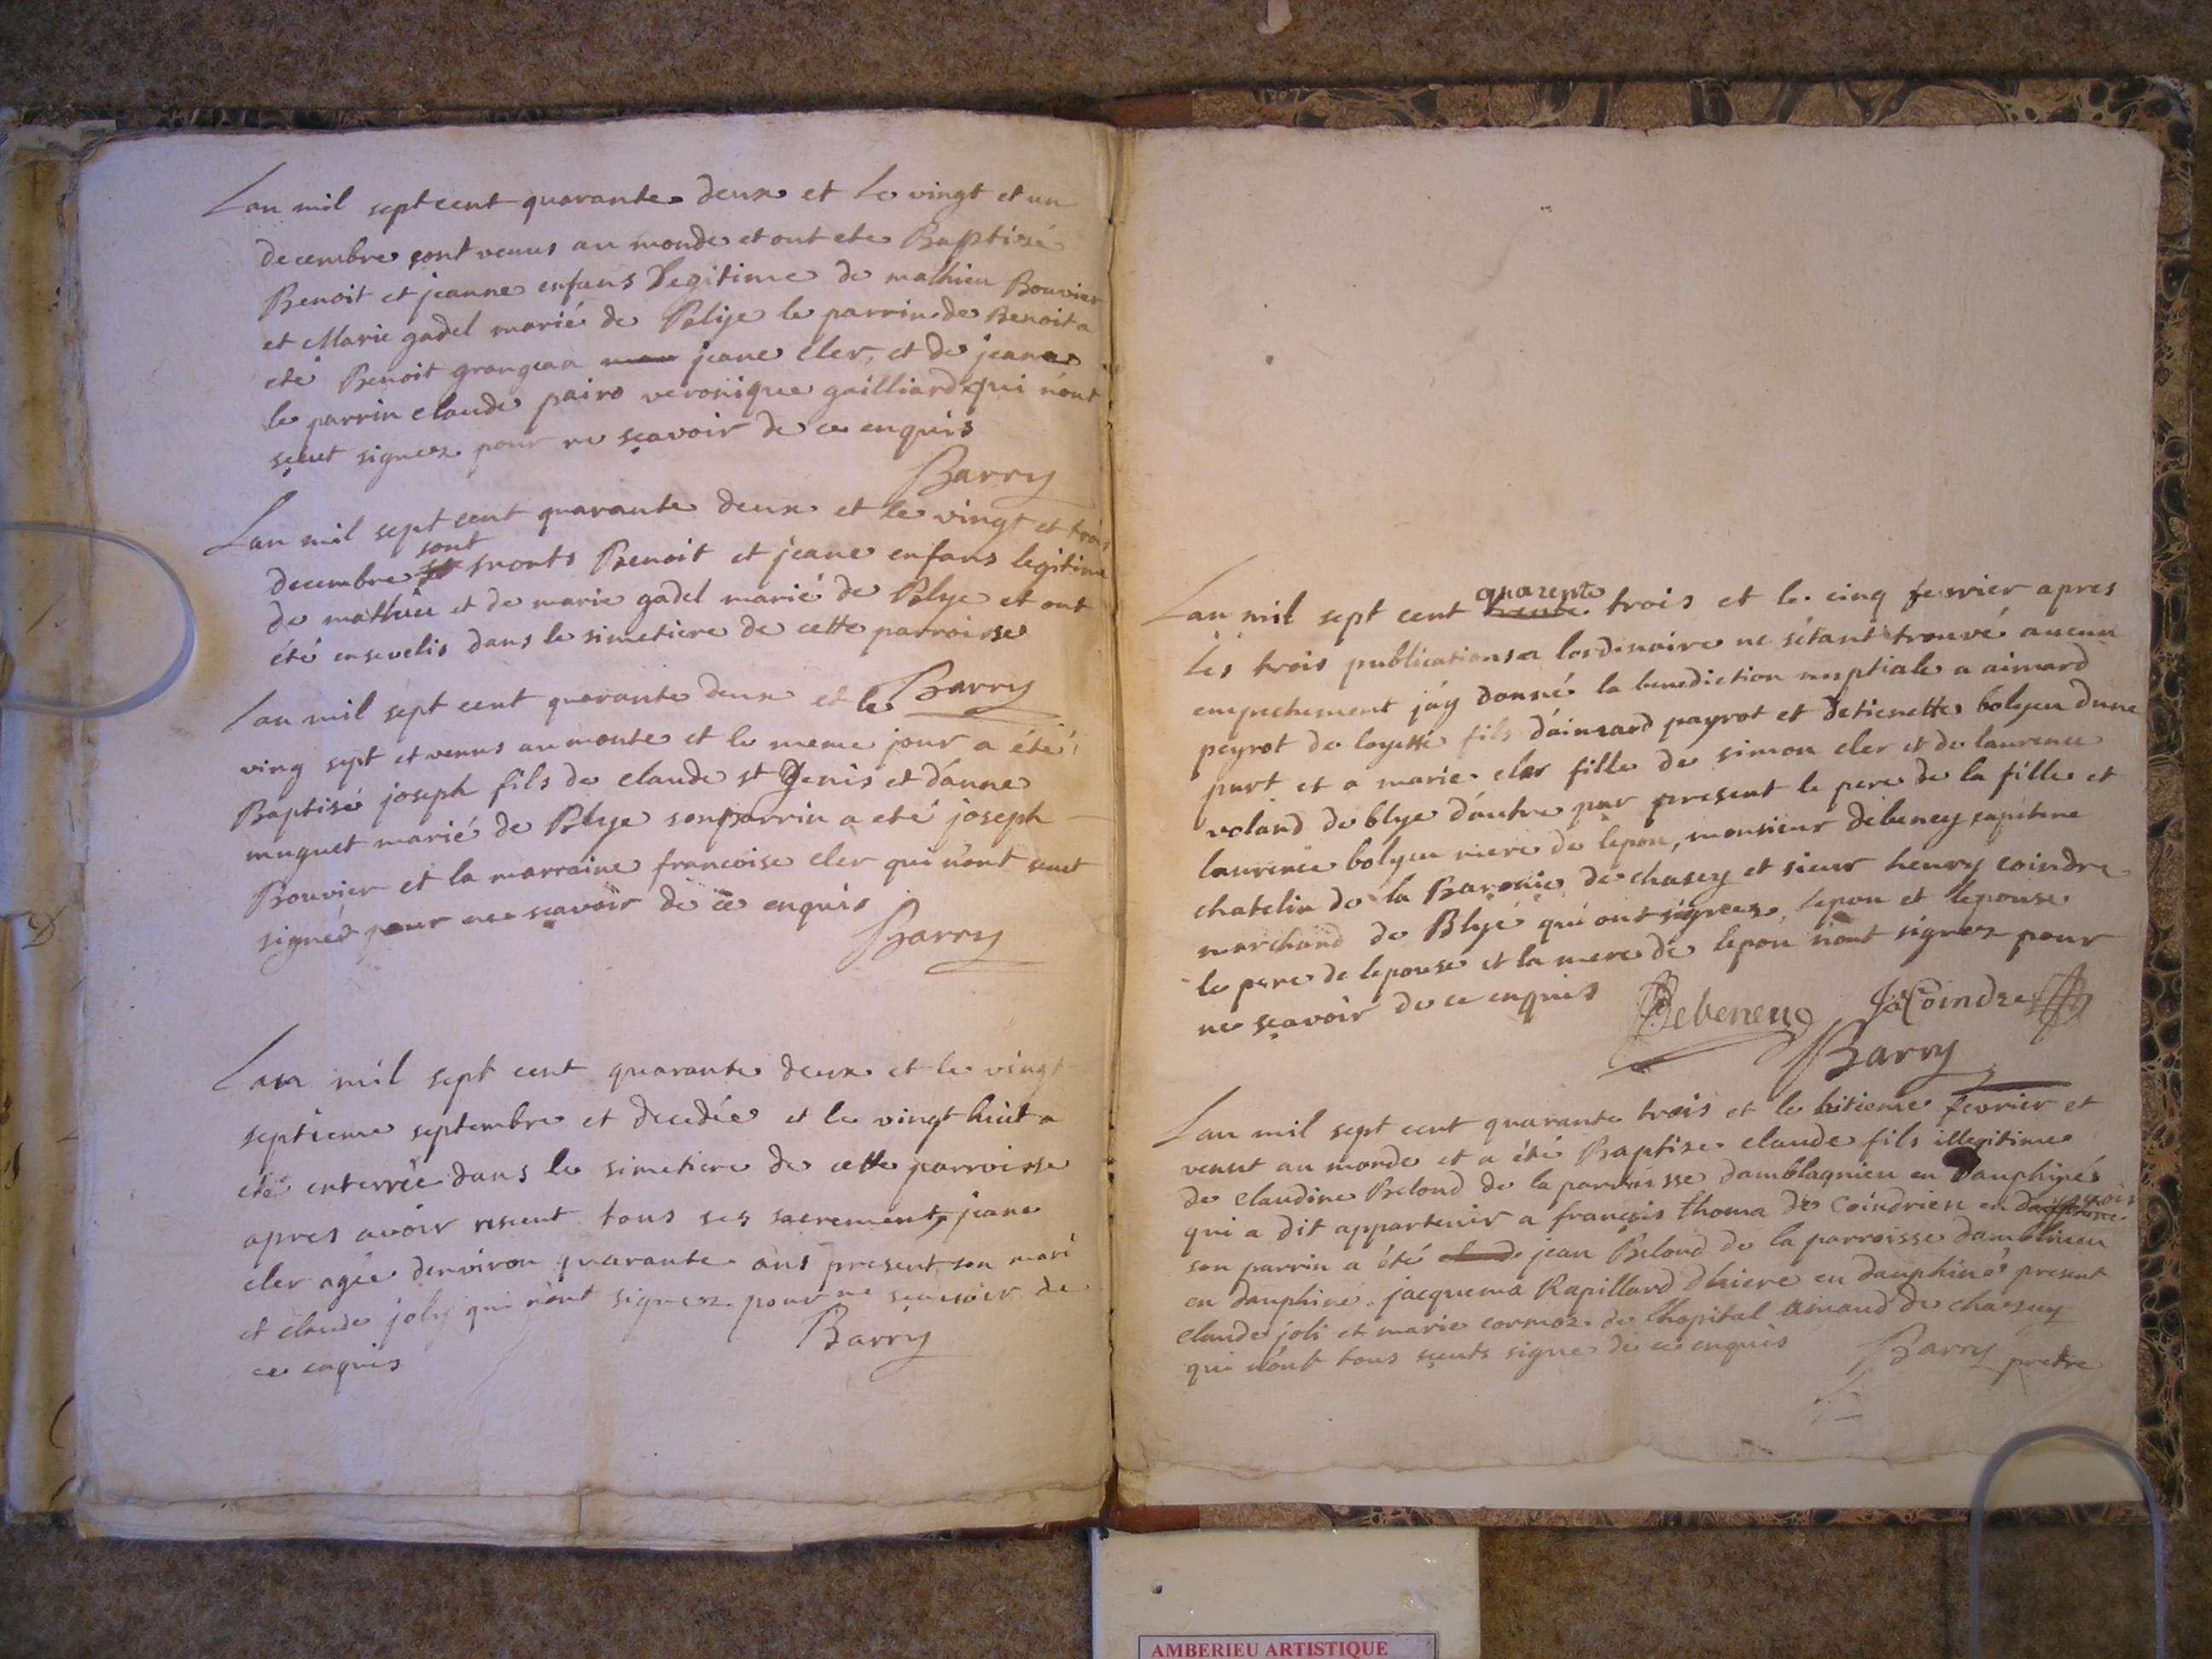 Lan mil sept cent quarante deux et le vingt et un
decembre sont venus au monde et ont ete Baptisé
Benoit et jeanne enfans legitime de mathieu Bouvier
et Marie gadel marié de Blije le parrin de Benoit a
eté Benoit grangea a jeane cler, et de jeane
le parrin claude pairo veronique gailliard qui nont
sçeut signez pour ne sçavoir de ce enquis
Barry
Lan mil sept cent quarante deux et le vingt et trois
sont
decembre morts Benoit et jeane enfans legitime
de mathieu et de marie gadel marié de Blye et ont
été ensevelis dans le simetiere de cette parroisse
Barry
Lan mil sept cent quarante deux et le
ving sept et venus au monte et le meme jour a été
Baptisé joseph fils de claude st Genis et d'anne
muguet marié de Blye son parrin a eté joseph
Bouvier et la marraine francoise cler qui n'ont sceut
signés pour ne sçavoir de ce enquis
Barry
Lan mil sept cent quarante deux et le vingt
septieme septembre et decedée et le vingt huit a
eté enterrée dans le simetiere de cette parroisse
apres avoir reseut tous ses sacrements jeane
cler agée denviron quarante ans present son mari
et claude joly qui n'ont signez pour ne sçavoir de
ce enquis
Barry
quarente
Lan mil sept cent trente trois et le cinq fevrier apres
les trois publications a lordinaire ne s'étant trouvé aucun
empechement j'ay donné la benediction nuptiale a aimard
peyrot de loyette fils d'aimard payrot et detienette bolyeu dune
part et a marie cler fille de simon cler et de laurence
voland de blye d'autre par present le pere de la fille et
laurence bolyeu mere de lepou, monsieur debeney capitene
chatelin de la Baronie de chasey et sieur henry coindre
marchand de Blye qui ont signez, lepou et lepouse
le pere de lepouse et la mere de lepou n'ont signez pour
ne sçavoir de ce enquis
Debeney Coindre
Barry
Lan mil sept cent quarante trois et le hitieme fevrier et
venut au monde et a été Baptize claude fils illegitime
de claudine Belond de la parroisse damblagnieu en Dauphiné
qui a dit appartenir a françois thoma de Coindrieu en
son parrin a été jean Belond de la parroisse
en dauphiné jacquema Rapillard dhiere en dauphiné present
claude joli et marie cormoz de lhopital amaud de chasey
qui n'ont tous sçeuts signe de ce enquis
Barry pretre
AMBERIEU ARTISTIQUE